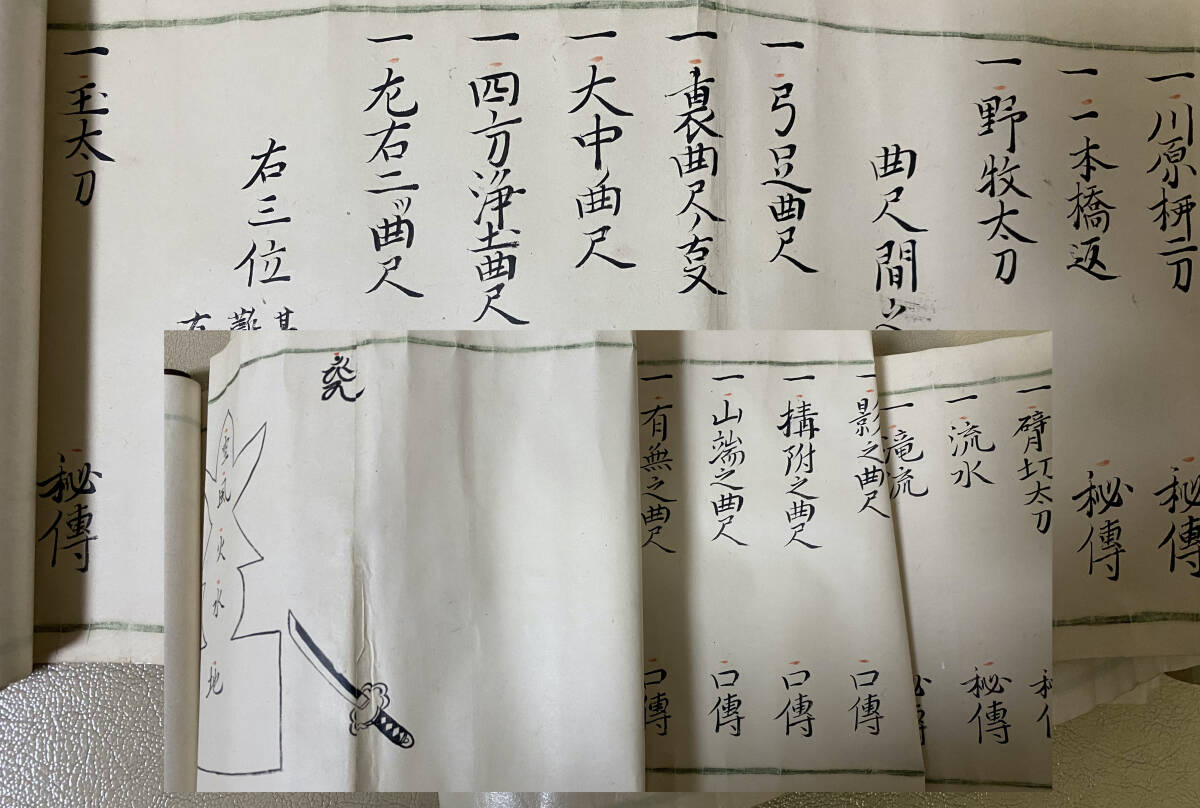 一川原栁二刀
秘傳
一一本橋返
秘傳
一野牧太刀
曲尺間之
一弓足曲尺
一裏曲尺ノ支
一大中ノ曲尺
一四方浄土曲尺
一左右二ツ曲尺
右三位
一玉太刀
秘傳
一臂打太刀
秘
一流水
秘傳
一滝流
一影之曲尺
口傳
一搆附之曲尺
口傳
一山端之曲尺
口傳
一有無之曲尺
口傳
空
風
火
水
地